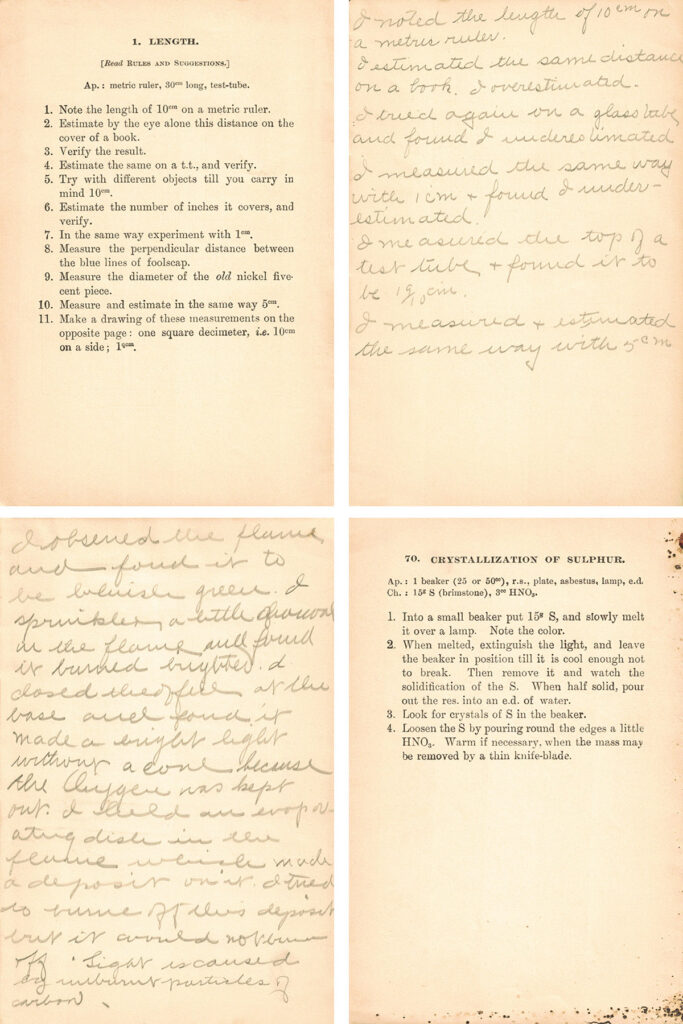 1. LENGTH.
[Read RULES AND SUGGESTIONS.]
Ap.: metric ruler, 30cm long, test-tube.
1. Note the length of 10cm on a metric ruler.
2. Estimate by the eye alone this distance on the
cover of a book.
3. Verify the result.
4. Estimate the same on a t.t., and verify.
5. Try with different objects till you carry in
mind 10cm.
6. Estimate the number of inches it covers, and
verify.
7. In the same way experiment with 1cm.
8. Measure the perpendicular distance between
the blue lines of foolscap.
9. Measure the diameter of the old nickel five-
cent piece.
10. Measure and estimate in the same way 5cm.
11. Make a drawing of these measurements on the
opposite page: one square decimeter, i.e. 10cm
on a side; 1qcm.
I noted the length of 10cm on
a metric ruler.
I estimated the same distance
on a book. I overestimated.
I tried again on a glass tube
and found I underestimated
I measured the same way
with 1cm + found I under-
estimated.
I measured the top of a
test tube + found it to
be 1 9/10 cm.
I measured + estimated
the same way with 5cm
I observed the flame
and fond it to
be bluish green. I
sprinkler a little charcoal
in the flame and found
it burned brighter. I
closed the off at the
base and fond it
made a bright light
without a cone because
the Oxygen was kept
out. I held an evapor-
ating dish in the
flame which made
a deposit on it. I tried
to burne off this deposit
but it would not burn
off. Light is caused
by unburnt particles of
carbon.
70. CRYSTALLIZATION OF SULPHUR.
Ap.: 1 beaker (25 or 50cc), r.s., plate, asbestus, lamp, e.d.
Ch.: 15g S (brimstone), 3cc HNO3.
1. Into a small beaker put 15g S, and slowly melt
it over a lamp. Note the color.
2. When melted, extinguish the light, and leave
the beaker in position till it is cool enough not
to break. Then remove it and watch the
solidification of the S. When half solid, pour
out the res. into an e.d. of water.
3. Look for crystals of S in the beaker.
4. Loosen the S by pouring round the edges a little
HNO3. Warm if necessary, when the mass may
be removed by a thin knife-blade.